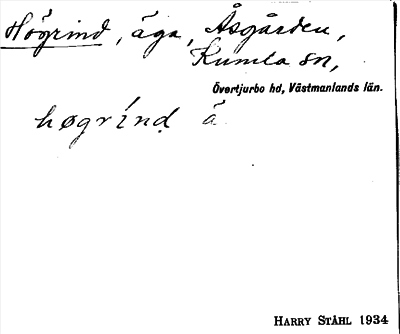 Högrind, äga, Åsgården,
Kumla sn,
Övertjurbo hd, Västmanlands län.
høgrínḍ ä
HARRY STÅHL 1934